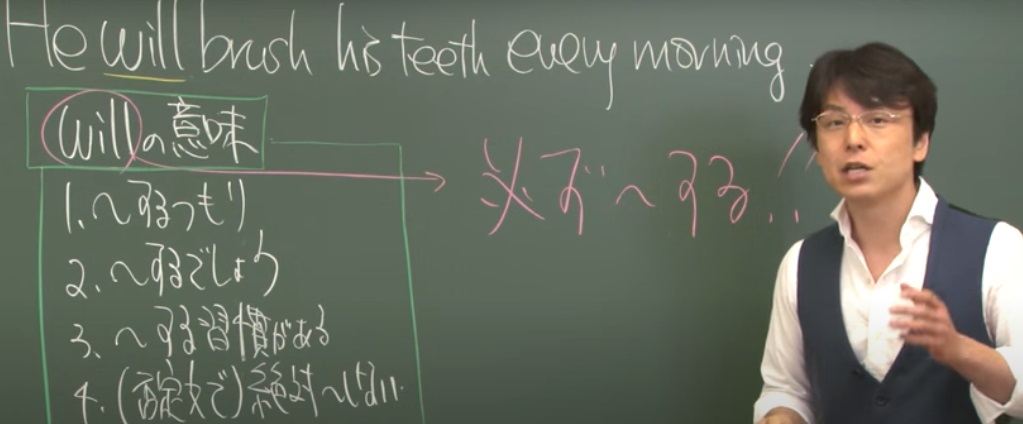 He will brush his teeth every morning.
willの意味
必ず〜する!!
1. 〜するつもり
2. 〜するでしょう
3. 〜する習慣がある
4. (否定文で)絶対〜しない